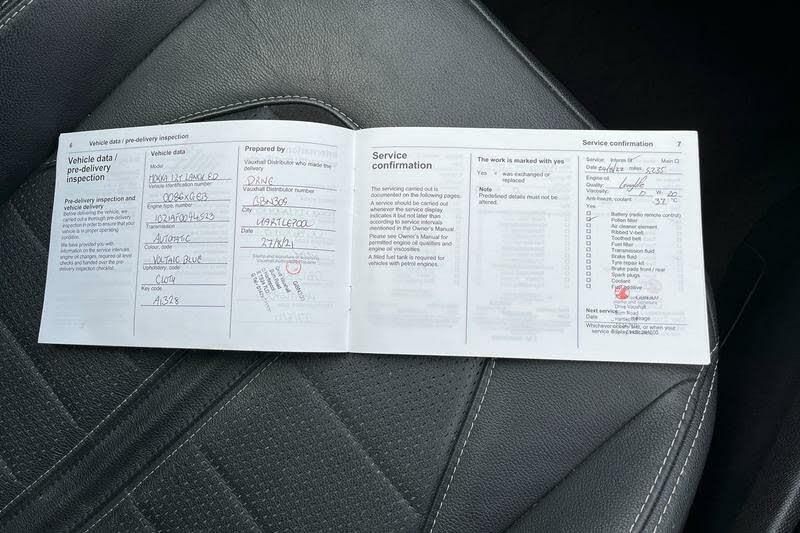 6 Vehicle data / pre-delivery inspection
Vehicle data /
pre-delivery
inspection
Pre-delivery inspection and
vehicle delivery
Before delivering the vehicle, we
carried out a thorough pre-delivery
inspection in order to ensure that your
vehicle is in proper operating
condition.
We have provided you with
information on the service intervals,
engine oil changes, required oil level
checks and handed over the pre-
delivery inspection checklist.
Vehicle data
Model
Vehicle identification number
Engine type, number
Transmission
AUTOMATIC
Colour, code
VOLTAIC BLUE
Upholstery, code
CLOTH
Key code
A1328
Prepared by
Vauxhall Distributor who made the
delivery
DRIVE
Vauxhall Distributor number
GBN309
City
HARTLEPOOL
Date
27/8/21
Service confirmation 7
Service
confirmation
The servicing carried out is
documented on the following pages.
A service should be carried out
whenever the service display
indicates it but not later than
according to service intervals
mentioned in the Owner's Manual.
Please see Owner's Manual for
permitted engine oil qualities and
engine oil viscosities.
A filled fuel tank is required for
vehicles with petrol engines.
The work is marked with yes
Yes × was exchanged or
replaced
Note
Predefined details must not be
altered.
Service: Interim Main
Date miles 5235
Engine oil
Quality:
Viscosity: 0 W- 20
Anti-freeze, coolant 37 °C
Yes
Battery (radio remote control)
Pollen filter
Air cleaner element
Ribbed V-belt
Toothed belt
Fuel filter
Transmission fluid
Brake fluid
Tyre repair kit
Brake pads front / rear
Spark plugs
Coolant
Fuel additive
Drive Vauxhall
Next service
Date
Whichever occurs first, or when your